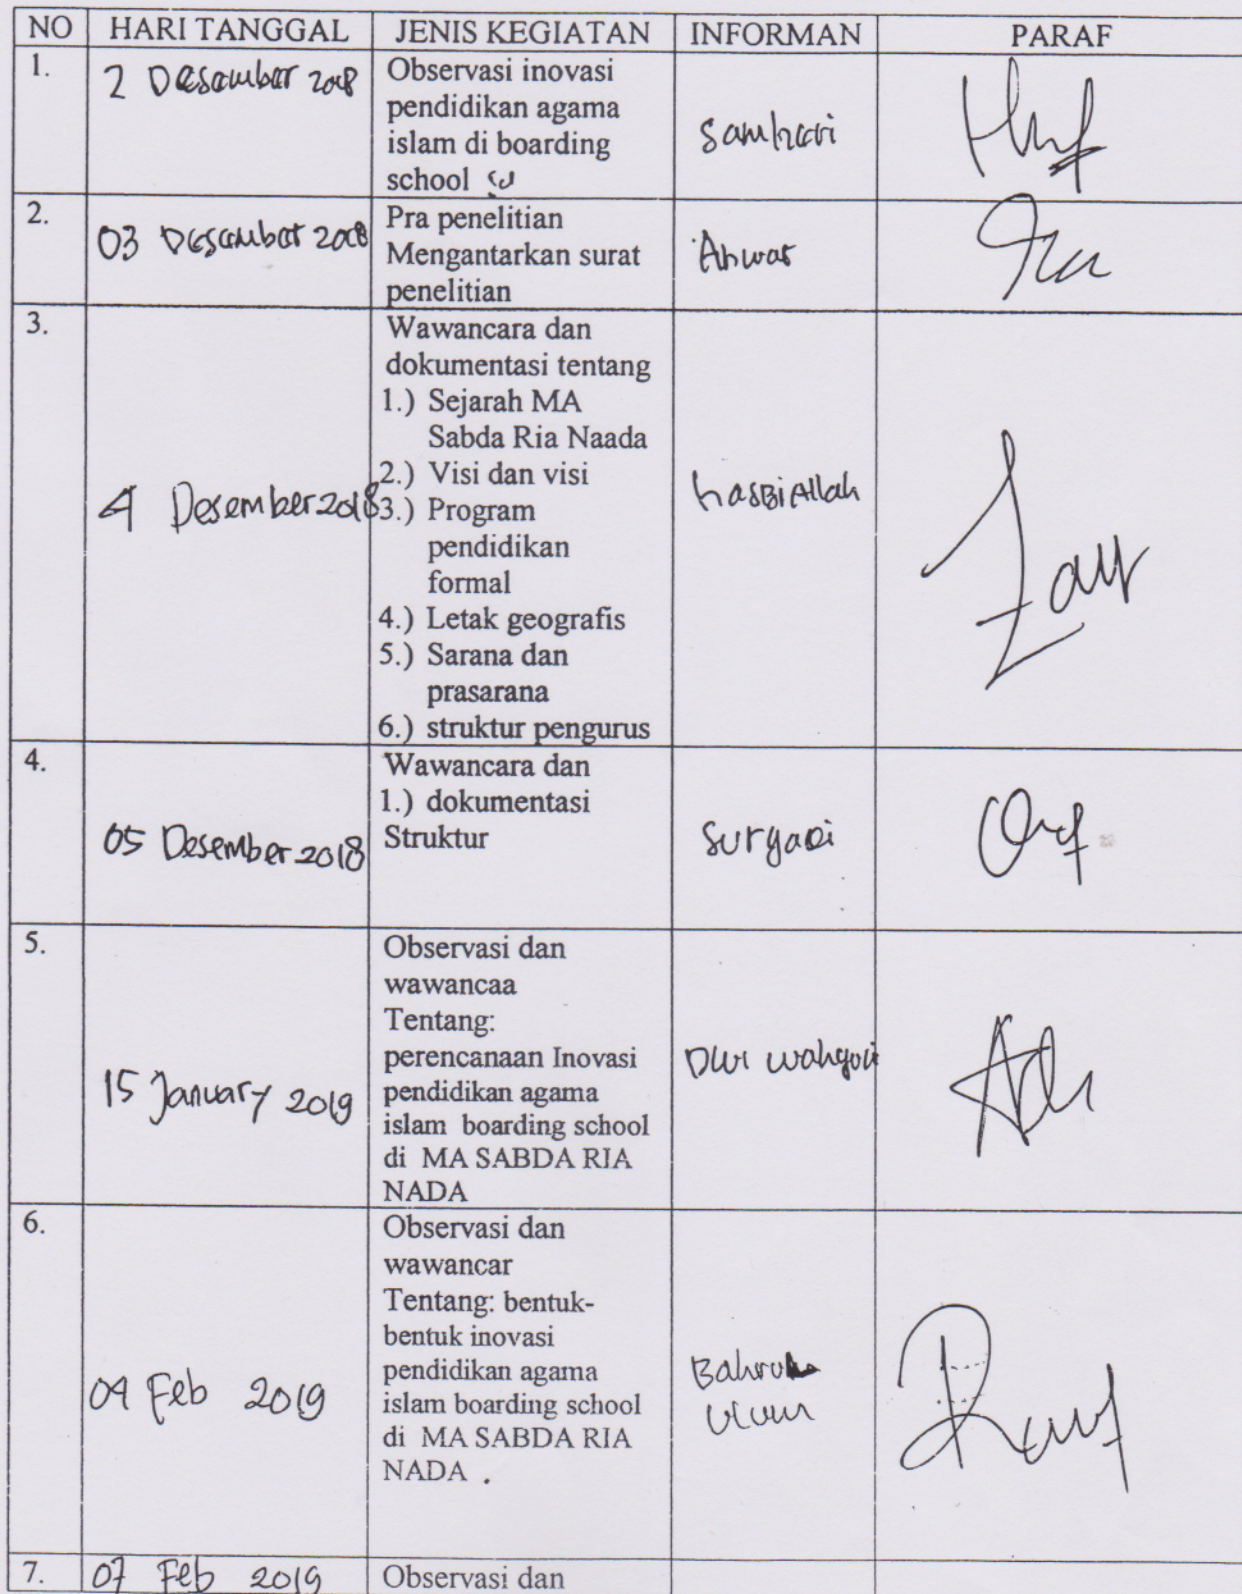 NO HARI TANGGAL JENIS KEGIATAN INFORMAN PARAF
1. 2 Desember 2018 Observasi inovasi
pendidikan agama
islam di boarding
school
Samhari
2. 03 Desember 2018 Pra penelitian
Mengantarkan surat
penelitian
Anwar
3. 4 Desember 2018 Wawancara dan
dokumentasi tentang
1.) Sejarah MA
Sabda Ria Naada
2.) Visi dan visi
3.) Program
pendidikan
formal
4.) Letak geografis
5.) Sarana dan
prasarana
6.) struktur pengurus
hasBiAllah
4. 05 Desember 2018 Wawancara dan
1.) dokumentasi
Struktur
Suryadi
5. 15 January 2019 Observasi dan
wawancaa
Tentang:
perencanaan Inovasi
pendidikan agama
islam boarding school
di MA SABDA RIA
NADA
Dwi wahyuni
6. 04 Feb 2019 Observasi dan
wawancar
Tentang: bentuk-
bentuk inovasi
pendidikan agama
islam boarding school
di MA SABDA RIA
NADA .
Bahrul
Ulum
7. 07 Feb 2019 Observasi dan